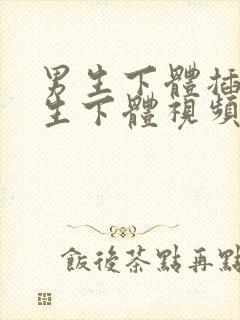 男生下體插
生下體視頻
飯後茶點再點